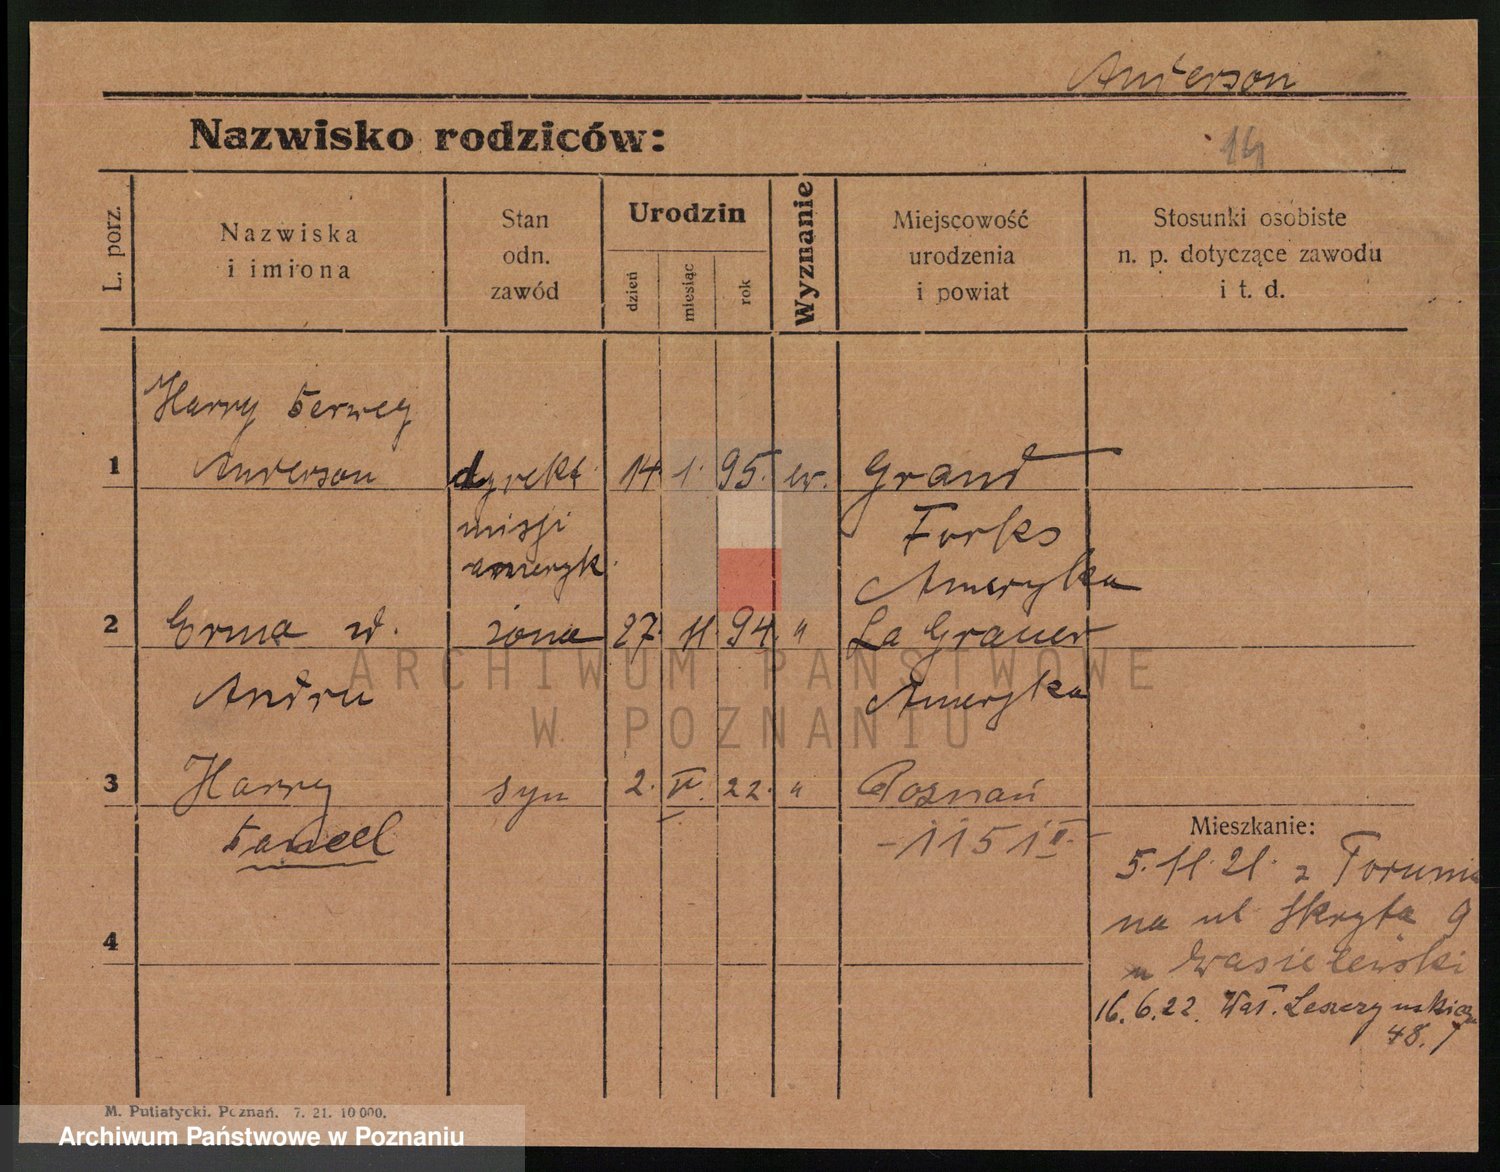 Anderson
Nazwisko rodziców:
14
L. porz.
Nazwiska
i imiona
Stan
odn.
zawód
Urodzin
dzień
miesiąc
rok
Wyznanie
Miejscowość
urodzenia
i powiat
Stosunki osobiste
n. p. dotyczące zawodu
i t. d.
Harry
1 Anderson dyrekt. 14. 1. 95. ew. Grand
misji Forks
ameryk. Ameryka
2 Erma żona 27. 11. 94. " La
Ameryka
3 Harry syn 2. 22. " Poznań
- 1151 II -
Mieszkanie:
5. 11. 21. z Torunia
na ul Skryta 9
u Wasielewski
4
16. 6. 22. Wał. Leszczyńskiego
48. I
M. Putiatycki. Poznań. 7. 21. 10 000.
ARCHIWUM PAŃSTWOWE
W POZNANIU
Archiwum Państwowe w Poznaniu